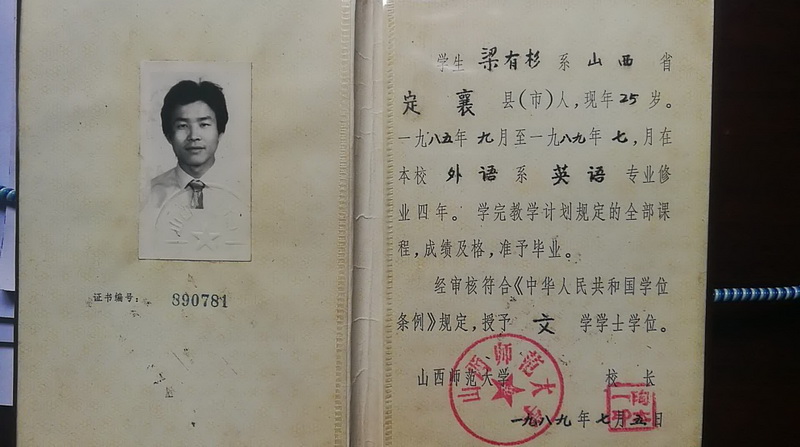 证书编号： 890781
学生 梁有杉 系 山西 省
定襄 县(市)人，现年 25 岁。
一九八五年 九 月至一九八九年 七，月在
本校 外语 系 英语 专业修
业四年。 学完教学计划规定的全部课
程，成绩及格，准予毕业。
经审核符合《中华人民共和国学位
条例》规定，授予 文 学学士学位。
山西师范大学 校 长
山西师范大学
一九八九 年 七 月 五 日